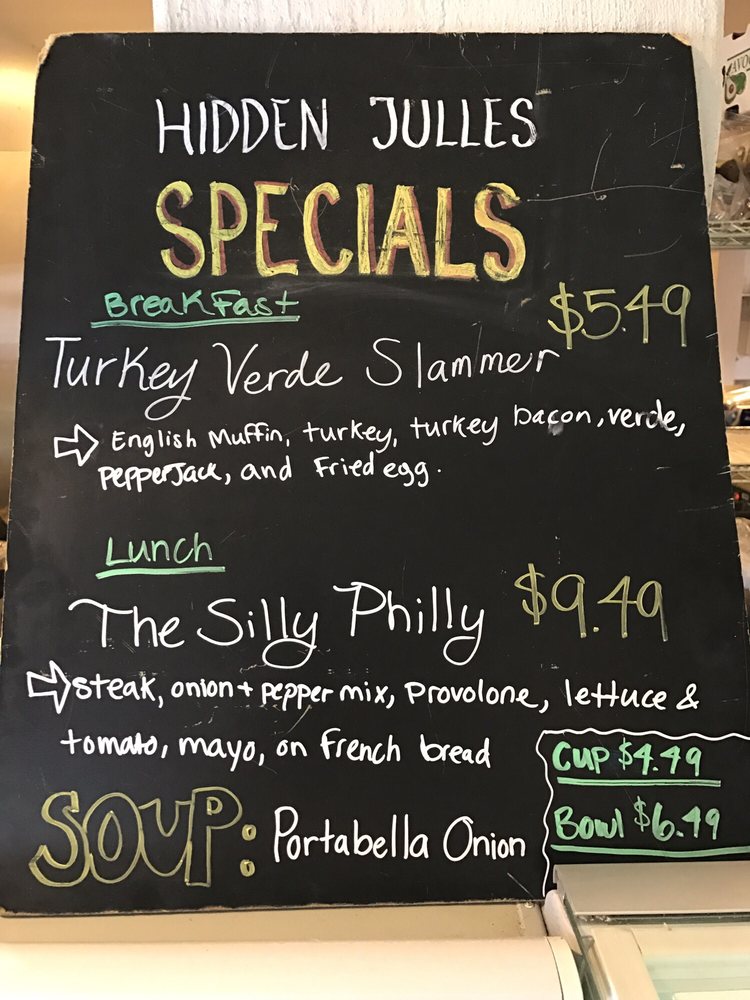 HIDDEN JULLES
SPECIALS
Breakfast
$5.49
Turkey Verde Slammer
English Muffin, turkey, turkey bacon, verde,
pepperJack, and Fried egg.
Lunch
The Silly Philly $9.49
steak, onion + pepper mix, Provolone, lettuce &
tomato, mayo, on French bread
Cup $4.49
Bowl $6.49
SOUP: Portabella Onion